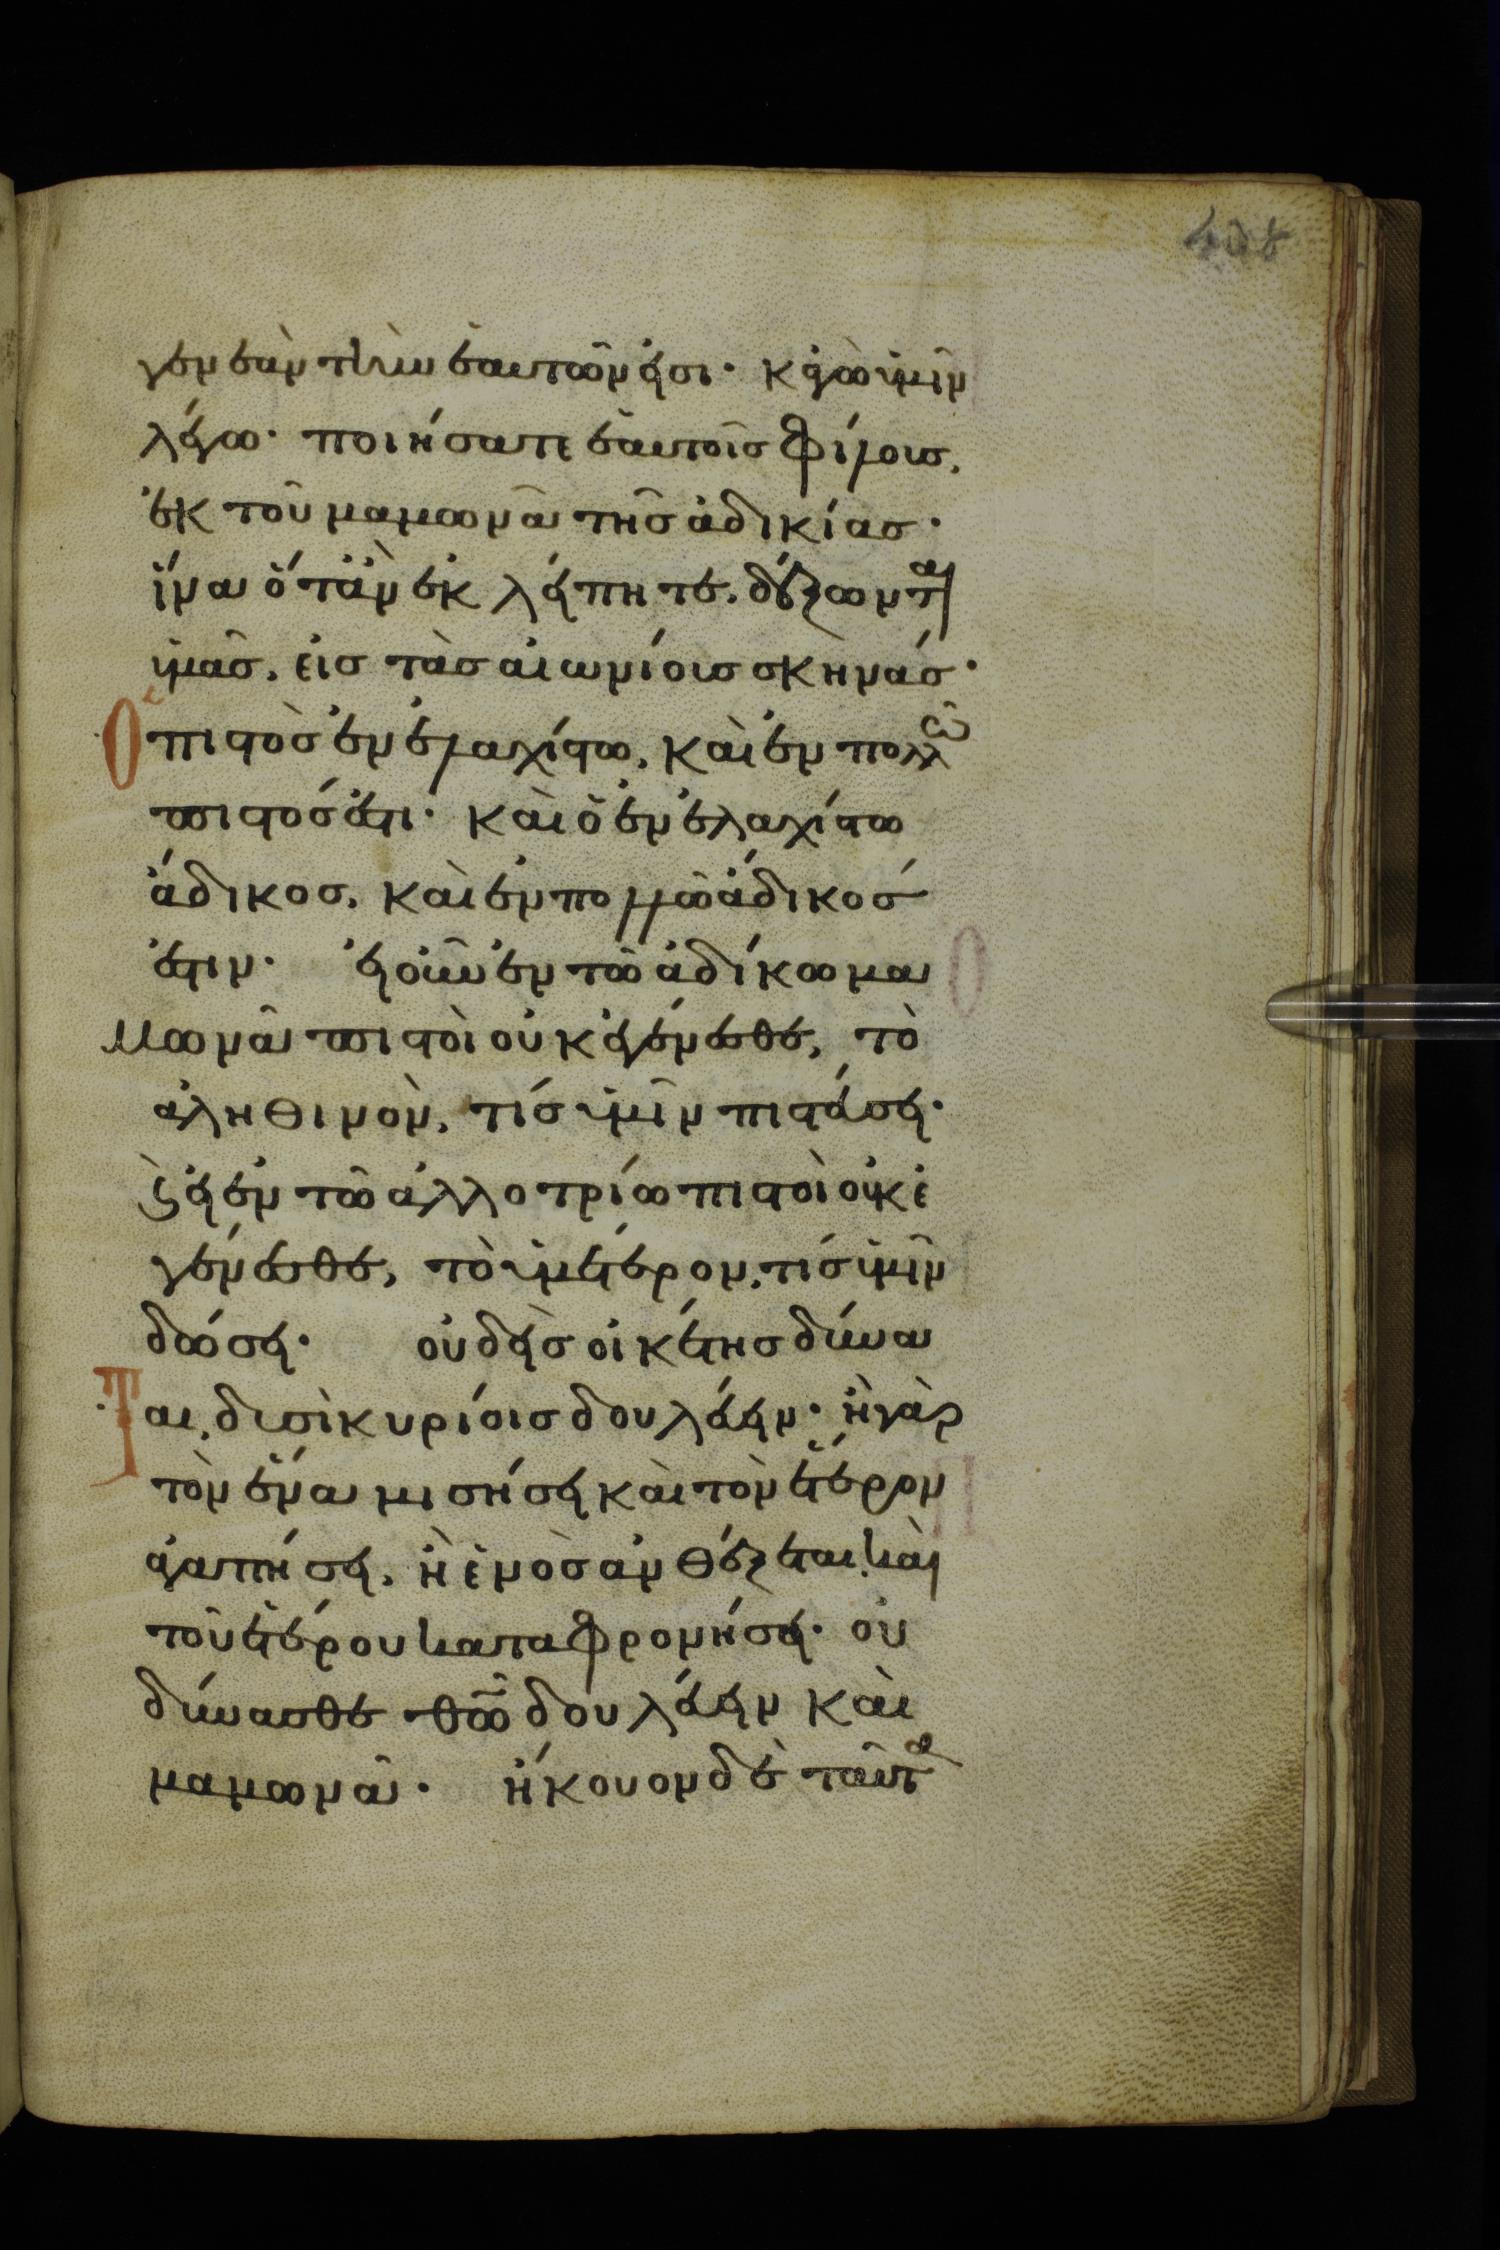 γενεὰν τὴν ἑαυτῶν εἰσι· κἀγὼ ὑμῖν
λέγω· ποιήσατε ἑαυτοῖς φίλους,
ἐκ τοῦ μαμωνᾶ τῆς ἀδικίας·
ἵνα ὅταν ἐκλείπητε, δέξωνται
ὑμᾶς, εἰς τὰς αἰωνίους σκηνάς·
Ὁ πιστὸς ἐν ἐλαχίστω, καὶ ἐν πολλῶ
πιστός ἐστι· καὶ ὁ ἐν ἐλαχίστω
ἄδικος, καὶ ἐν πολλῶ ἄδικός
ἐστιν· εἰ οὖν ἐν τῶ ἀδίκω μα
μωνᾶ πιστοὶ οὐκ ἐγένεσθε, τὸ
ἀληθινὸν, τίς ὑμῖν πιστεύσει·
ϗ εἰ ἐν τῶ ἀλλοτρίω πιστοὶ οὐκ ἐ
γένεσθε, τὸ ὑμέτερον, τίς ὑμῖν
δώσει· οὐδεὶς οἰκέτης δύνα
Ται, δυσὶ κυρίοις δουλεύειν· ἢ γὰρ
τὸν ἕνα μισήσει καὶ τὸν ἕτερον
ἀγαπήσει, ἢ ἑνὸς ἀνθέξεται, καὶ
τοῦ ἑτέρου καταφρονήσει· οὐ
δύνασθε θῶ δουλεύειν καὶ
μαμωνᾶ· ἤκουον δὲ ταῦτα